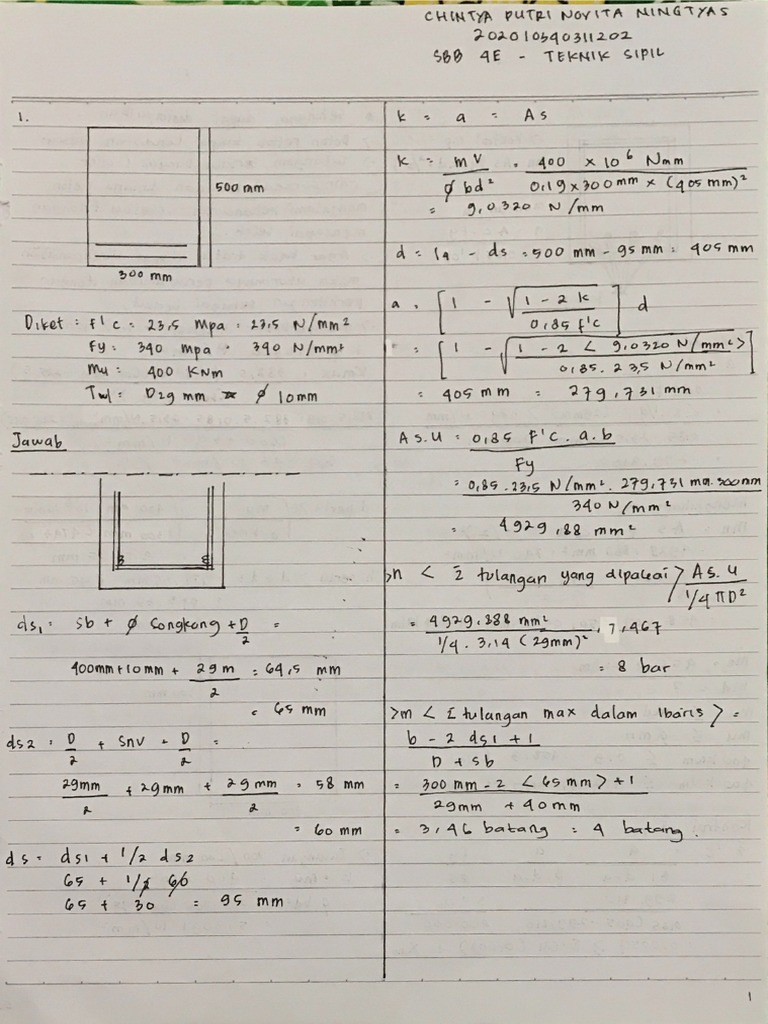 CHINTYA PUTRI NOVITA NINGTYAS
202010340311202
SBB 4E - TEKNIK SIPIL
1.
500 mm
300 mm
Diket : F'c = 23,5 Mpa = 23,5 N/mm²
Fy = 340 mpa = 340 N/mm²
Mu = 400 KNm
Twl = D29 mm ø 10mm
Jawab
ds₁ = sb + ø Songkong + D/2 =
400mm + 10 mm + 29m/2 = 64,5 mm
= 65 mm
ds2 = D/2 + Snv + D/2 =
29mm/2 + 29mm + 29mm/2 = 58 mm
= 60 mm
ds = ds1 + 1/2 ds2
65 + 1/2 60
65 + 30 = 95 mm
k = a = As
k = mv / ø bd² = 400 × 10⁶ Nmm / 0,19 × 300 mm × (405 mm)²
= 9,0320 N/mm
d = la - ds = 500 mm - 95 mm = 405 mm
a = [1 - √(1 - 2 k / 0,85 f'c)] d
= [1 - √(1 - 2 < 9,0320 N/mm² > / 0,85 . 23,5 N/mm²)]
= 405 mm = 279,731 mm
As.u = 0,85 F'c . a . b / Fy
= 0,85 . 23,5 N/mm² . 279,731 mm . 300mm / 340 N/mm²
= 4929,88 mm²
>n < Σ tulangan yang dipakai > As.u / 1/4 π D²
= 4929,888 mm² / 1/4 . 3,14 (29mm)² = 7,467
= 8 bar
>m < Σ tulangan max dalam 1baris > =
b - 2 ds1 + 1 / D + sb
= 300 mm - 2 < 65 mm > + 1 / 29mm + 40mm
= 3,46 batang = 4 batang.
1